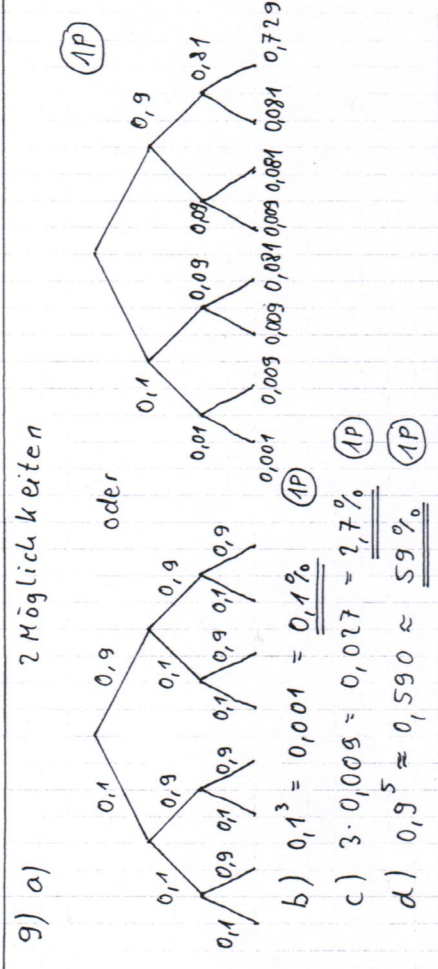 g) a) 2 Möglichkeiten
oder
1P
0,1 0,9
0,1 0,9 0,1 0,9
0,1 0,9 0,1 0,9 0,1 0,9 0,1 0,9
0,1 0,9
0,01 0,09 0,09 0,81
0,001 0,009 0,009 0,081 0,009 0,081 0,081 0,729
b) 0,1³ = 0,001 = 0,1% 1P
c) 3·0,009 = 0,027 = 2,7% 1P
d) 0,9⁵ ≈ 0,590 ≈ 59% 1P